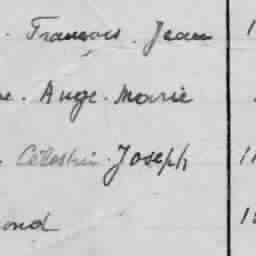 . François . Jean 1
e . Ange . Marie
. Célestin . Joseph 1
ond 1